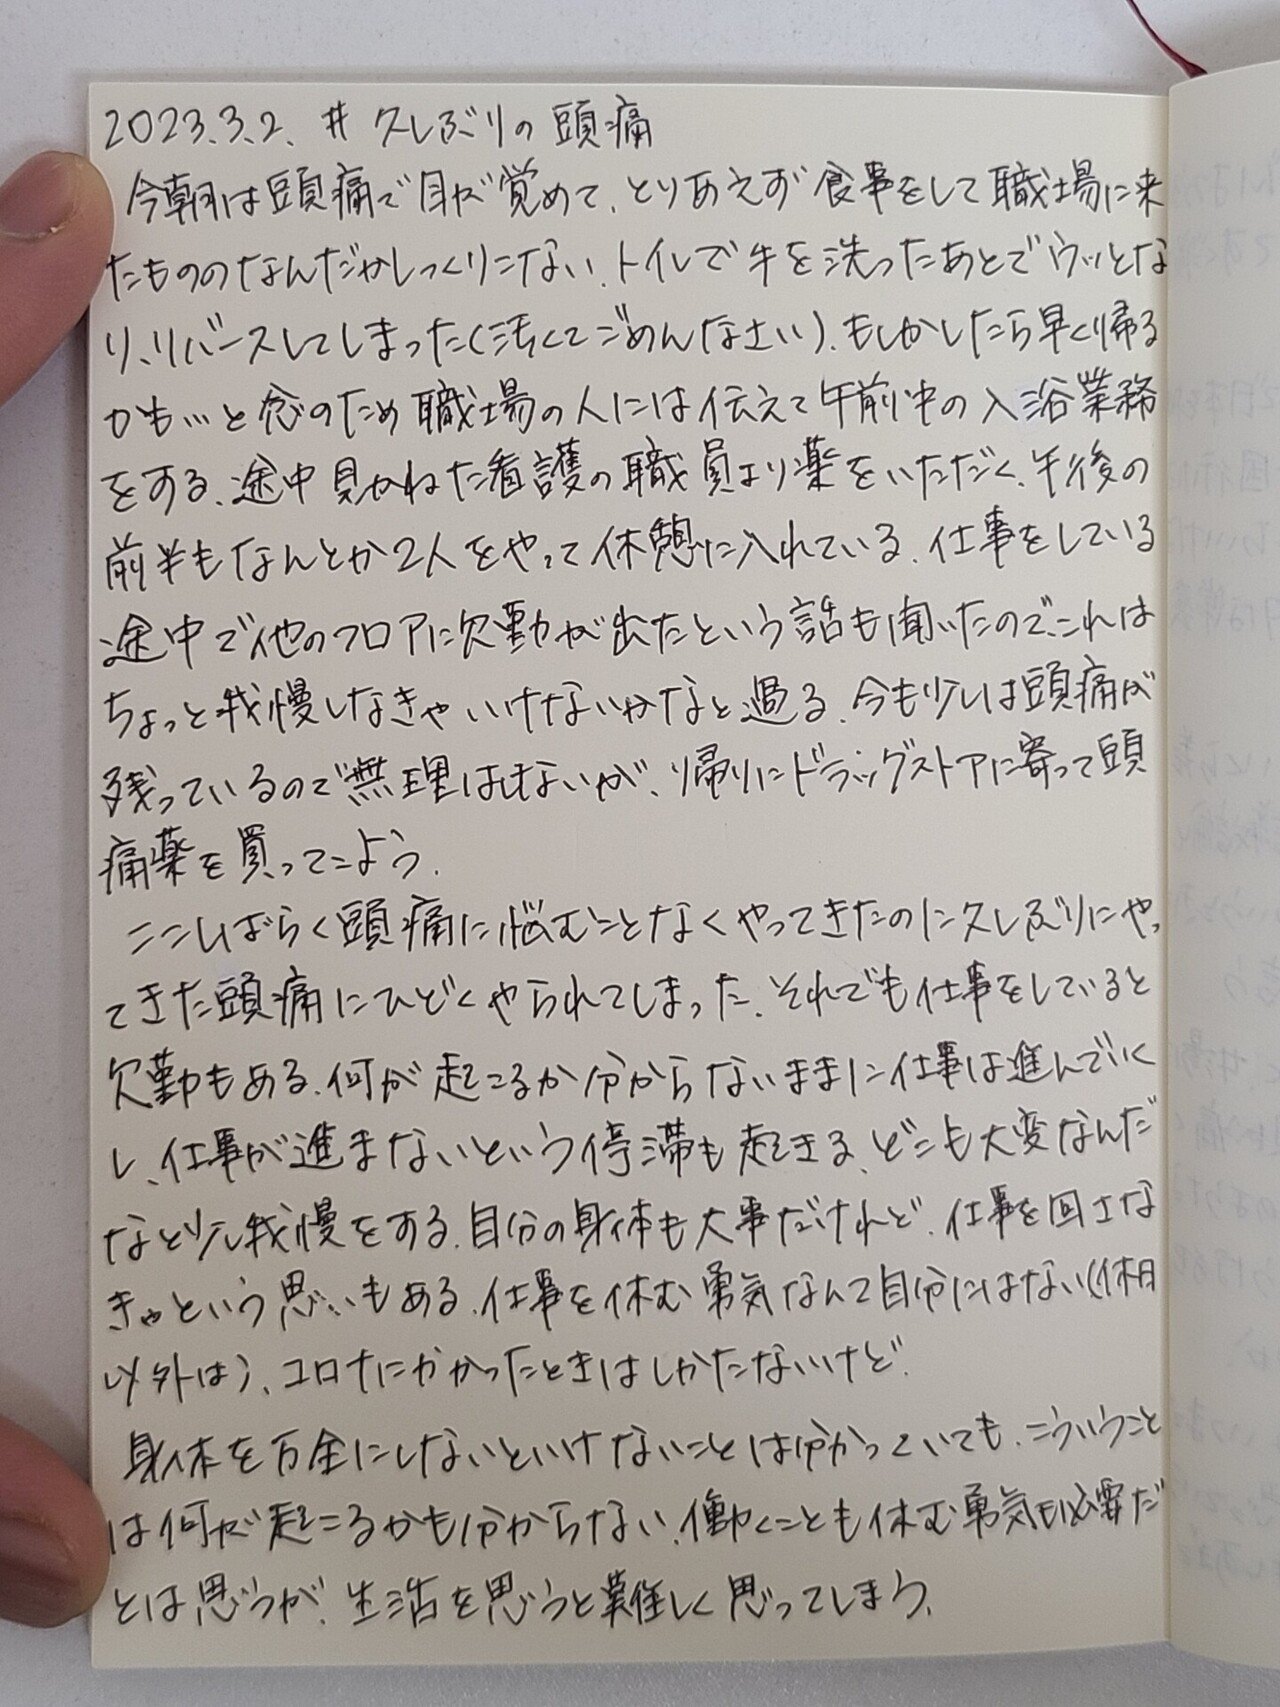 2023.3.2. # 久しぶりの頭痛
今朝は頭痛で目が覚めて、とりあえず食事をして職場に来
たもののなんだかしっくりこない。トイレで手を洗ったあとでウッとな
り、リバースしてしまった(汚くてごめんなさい)。もしかしたら早く帰る
かも…と念のため職場の人には伝えて午前中の入浴業務
をする。途中見かねた看護の職員より薬をいただく。午後の
前半もなんとか2人をやって休憩に入れている。仕事をしている
途中で他のフロアに欠勤が出たという話も聞いたので、これは
ちょっと我慢しなきゃいけないかなと過る。今も少しは頭痛が
残っているので無理はしないが、帰りにドラッグストアに寄って頭
痛薬を買ってこよう。
ここしばらく頭痛に悩むことなくやってきたのに久しぶりにやっ
てきた頭痛にひどくやられてしまった。それでも仕事をしていると
欠勤もある。何が起こるか分からないままに仕事は進んでいく
し、仕事が進まないという停滞も起きる。どこも大変なんだ
なと少し我慢をする。自分の身体も大事だけれど、仕事を回さな
きゃという思いもある。仕事を休む勇気なんて自分にはない(休日
以外は)、コロナにかかったときはしかたないけど。
身体を万全にしないといけないことは分かっていても、こういうこと
は何が起こるかも分からない。働くことも休む勇気も必要だ
とは思うが、生活を思うと難しく思ってしまう。